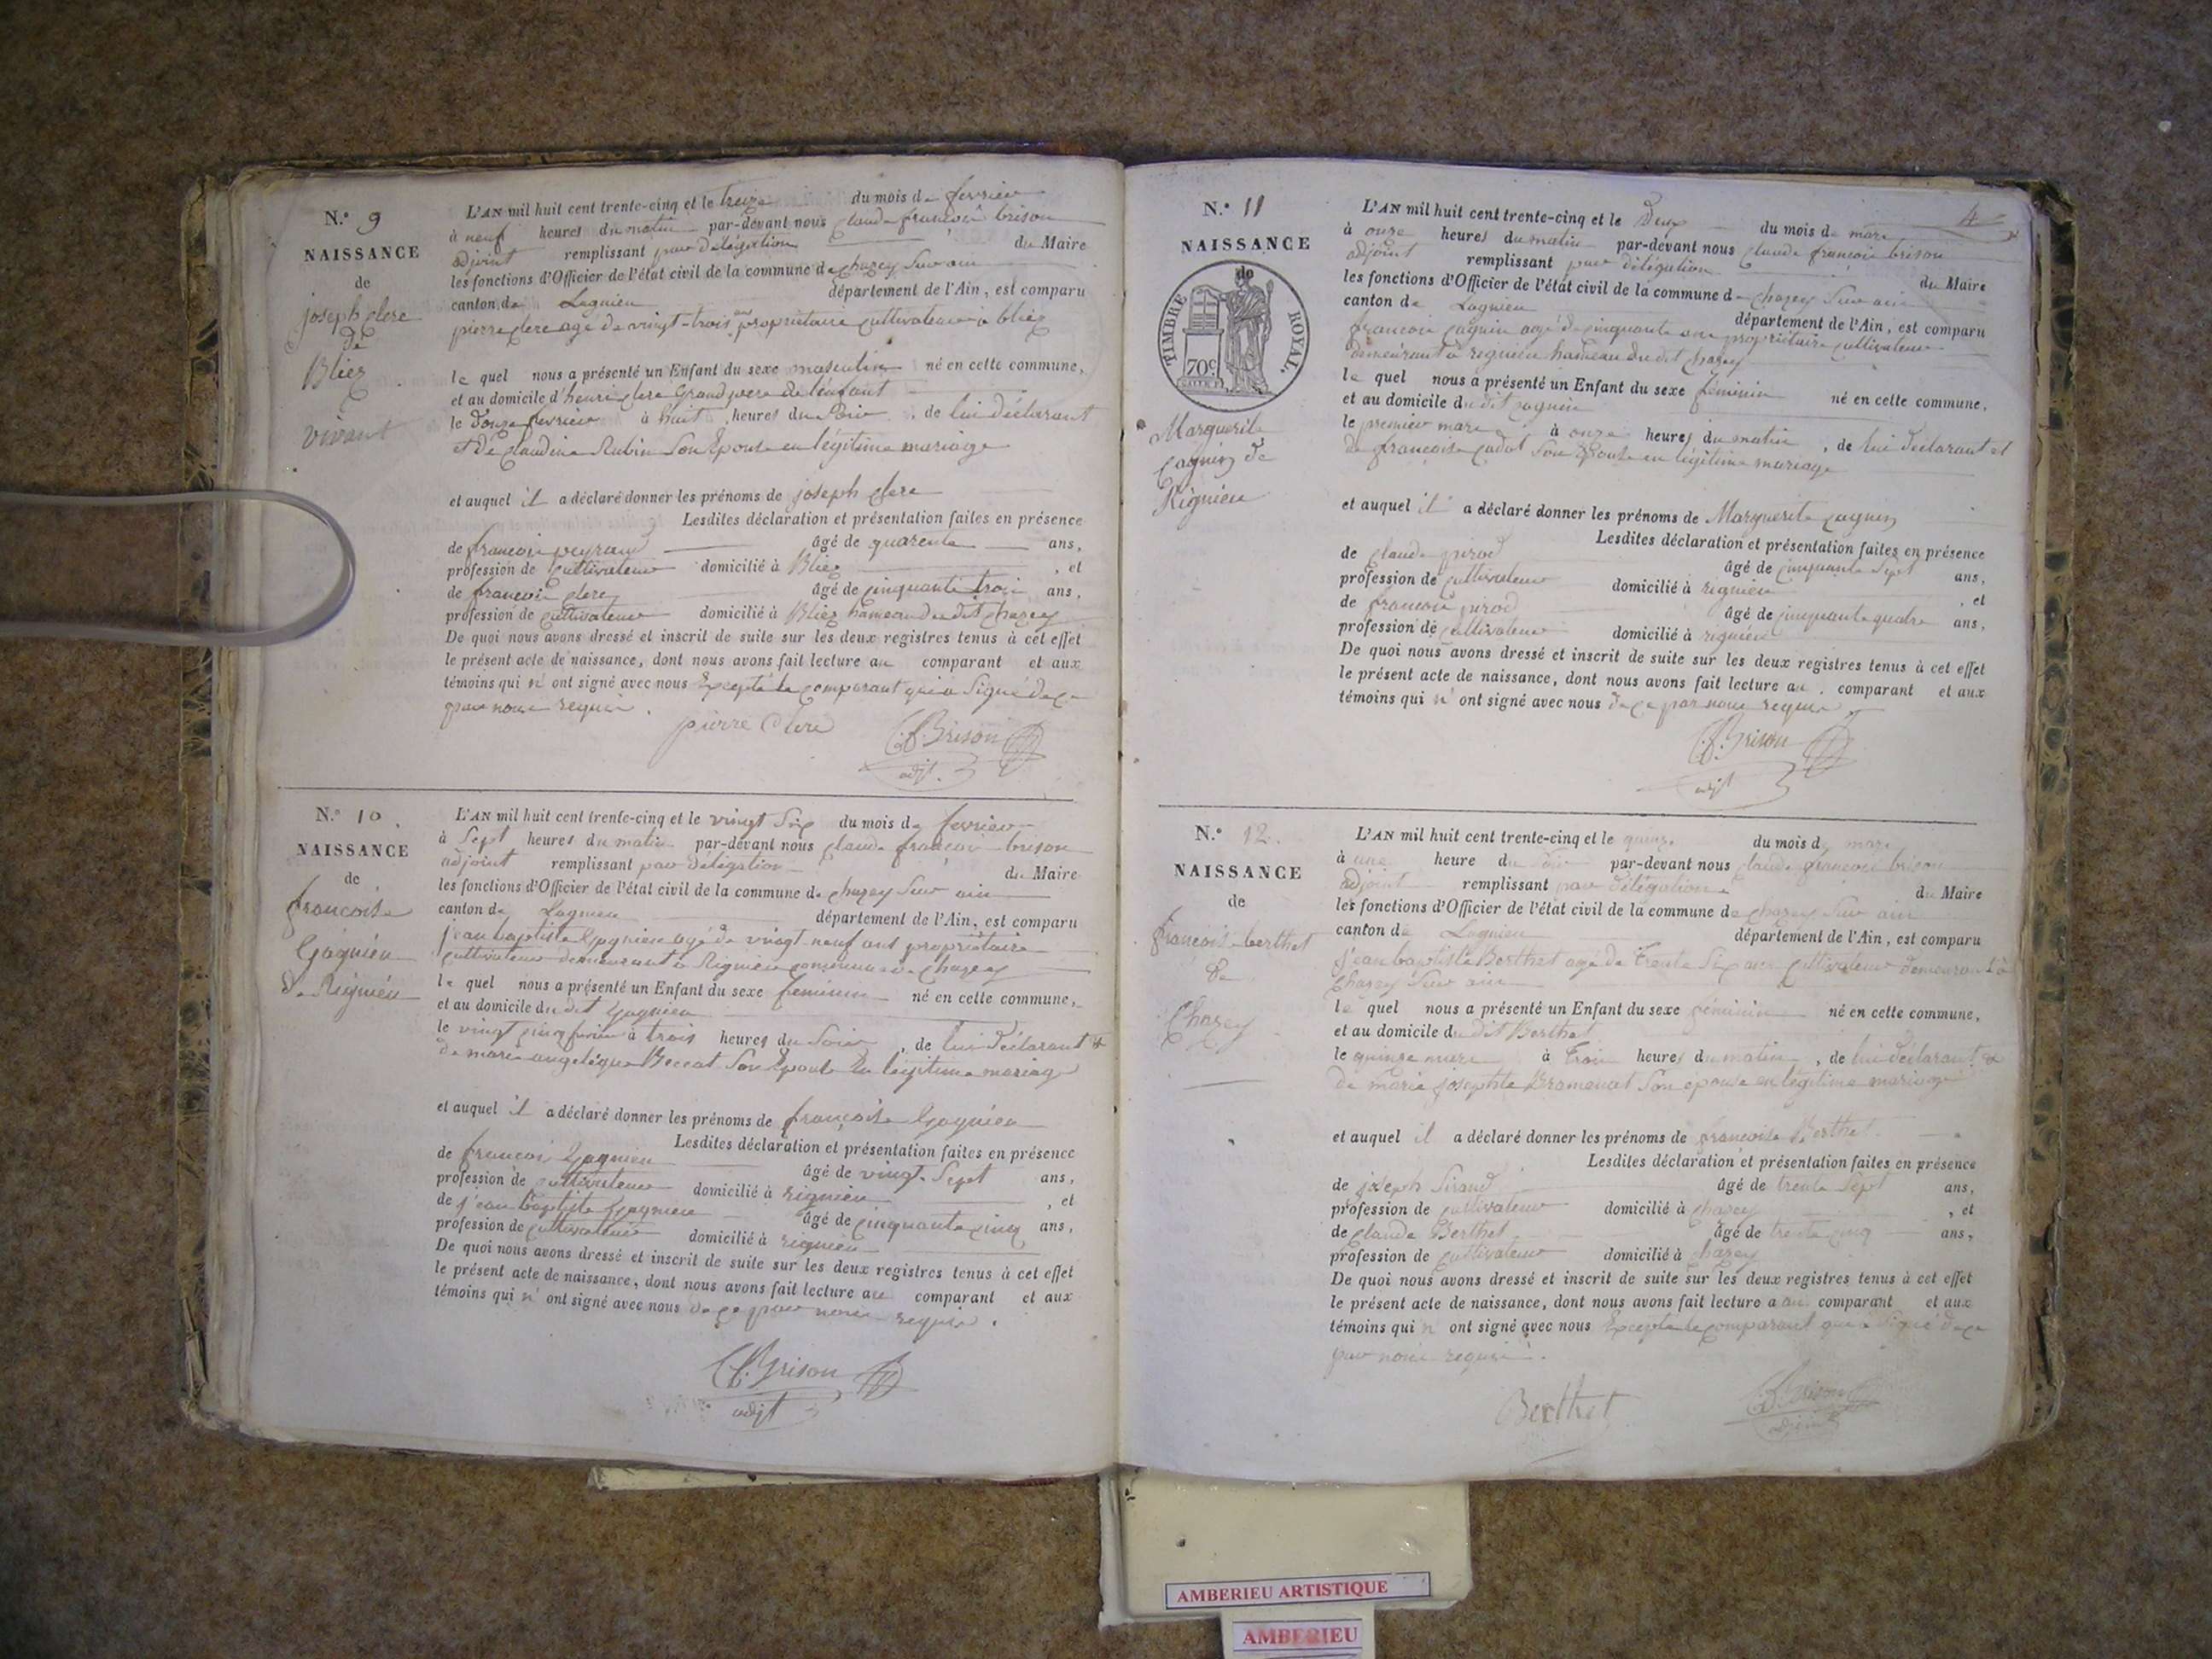 N.º 9
NAISSANCE
de
joseph clerc
de
Bliez
vivant
L'AN mil huit cent trente-cinq et le treize du mois de fevrier
à neuf heures du matin par-devant nous claude francois brison
adjoint remplissant par délégation du Maire
les fonctions d'Officier de l'état civil de la commune de chazey sur ain
canton de Lagnieu département de l'Ain, est comparu
pierre clerc agé de vingt-trois ans propriétaire cultivateur à bliez
le quel nous a présenté un Enfant du sexe masculin né en cette commune,
et au domicile d'henri clerc Grand pere de l'enfant
le douze fevrier à huit heures du Soir, de lui déclarant
et de claudine Rubin Son Epouse en légitime mariage
et auquel il a déclaré donner les prénoms de joseph clerc
Lesdites déclaration et présentation faites en présence
de francois peyraud âgé de quarente ans,
profession de cultivateur domicilié à Bliez, et
de francois clerc âgé de cinquante trois ans,
profession de cultivateur domicilié à Bliez hameau du dit chazey
De quoi nous avons dressé et inscrit de suite sur les deux registres tenus à cet effet
le présent acte de naissance, dont nous avons fait lecture au comparant et aux
témoins qui n'ont signé avec nous Excepté le comparant qui a Signé de ce
par nous requis.
pierre Clerc C.f. Brison
adjt.
N.º 10.
NAISSANCE
de
francoise
Gagnieu
de Rignieu
L'AN mil huit cent trente-cinq et le vingt Six du mois de fevrier
à Sept heures du matin par-devant nous claude francois brison
adjoint remplissant par délégation du Maire
les fonctions d'Officier de l'état civil de la commune de chazey Sur ain
canton de Lagnieu département de l'Ain, est comparu
jean baptiste Gagnieu agé de vingt neuf ans propriétaire
cultivateur demeurant à Rignieu commune de Chazey
le quel nous a présenté un Enfant du sexe feminin né en cette commune,
et au domicile du dit Gagnieu
le vingt cinq fevrier à trois heures du Soir, de lui déclarant &
de marie angelique Beccat Son Epouse En legitime mariage
et auquel il a déclaré donner les prénoms de françoise Gagnieu
Lesdites déclaration et présentation faites en présence
de francois Gagnieu âgé de vingt Sept ans,
profession de cultivateur domicilié à rignieu, et
de jean baptiste Gagnieu âgé de cinquante cinq ans,
profession de cultivateur domicilié à rignieu
De quoi nous avons dressé et inscrit de suite sur les deux registres tenus à cet effet
le présent acte de naissance, dont nous avons fait lecture au comparant et aux
témoins qui n'ont signé avec nous de ce par nous requis.
C.f. Brison
adjt
N.º 11
NAISSANCE
de
TIMBRE ROYAL.
70c
Marguerite
cagnin de
Rignieu
4
L'AN mil huit cent trente-cinq et le Deux du mois de mars
à onze heures du matin par-devant nous claude francois brison
adjoint remplissant par délégation du Maire
les fonctions d'Officier de l'état civil de la commune de chazey Sur ain
canton de Lagnieu département de l'Ain, est comparu
francois cagnin agé de cinquante ans propriétaire cultivateur
demeurant à rignieu hameau du dit chazey
le quel nous a présenté un Enfant du sexe féminin né en cette commune,
et au domicile du dit cagnin
le premier mars à onze heures du matin, de lui déclarant et
de francoise cadot Son Epouse en légitime mariage
et auquel il a déclaré donner les prénoms de Marguerite cagnin
Lesdites déclaration et présentation faites en présence
de claude pirod âgé de cinquante Sept ans,
profession de cultivateur domicilié à rignieu, et
de francois pirod âgé de cinquante quatre ans,
profession de cultivateur domicilié à rignieu
De quoi nous avons dressé et inscrit de suite sur les deux registres tenus à cet effet
le présent acte de naissance, dont nous avons fait lecture au comparant et aux
témoins qui n'ont signé avec nous de ce par nous requis
C.f. Brison
adjt
N.º 12.
NAISSANCE
de
francoise berthet
de
Chazey
L'AN mil huit cent trente-cinq et le quinze du mois de mars
à une heure du Soir par-devant nous claude francois brison
adjoint remplissant par délégation du Maire
les fonctions d'Officier de l'état civil de la commune de chazey Sur ain
canton de Lagnieu département de l'Ain, est comparu
jean baptiste Berthet agé de Trente Six ans cultivateur demeurant à
Chazey Sur ain
le quel nous a présenté un Enfant du sexe féminin né en cette commune,
et au domicile du dit Berthet
le quinze mars à trois heures du matin, de lui déclarant &
de marie josephte Bramerat Son epouse en légitime mariage
et auquel il a déclaré donner les prénoms de francoise Berthet
Lesdites déclaration et présentation faites en présence
de joseph Siraud âgé de trente Sept ans,
profession de cultivateur domicilié à chazey, et
de claude Berthet âgé de trente cinq ans,
profession de cultivateur domicilié à chazey
De quoi nous avons dressé et inscrit de suite sur les deux registres tenus à cet effet
le présent acte de naissance, dont nous avons fait lecture a au comparant et aux
témoins qui n ont signé avec nous Excepté le comparant qui a Signé de ce
par nous requis.
Berthet C.f. Brison
AMBERIEU ARTISTIQUE
AMBERIEU